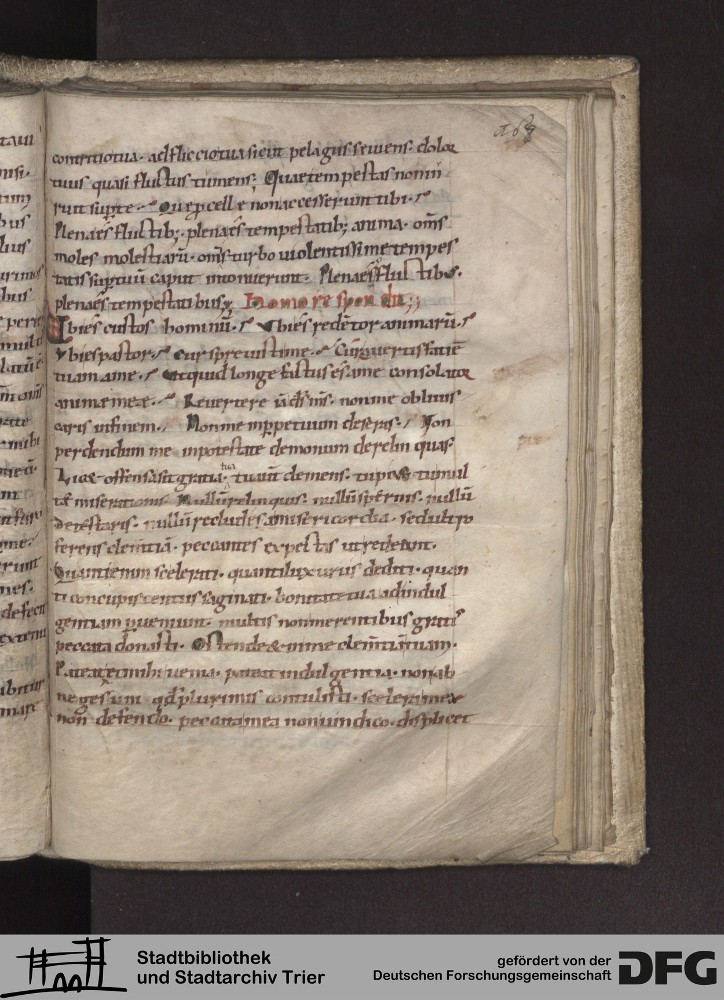 contritio tua· adflictio tua sicut pelagus seuiens· dolor
tuus quasi fluctus tumens; Quae tempestas non in
ruit sup te· Quę pcelle non accesserunt tibi·
Plena es fluctib; plena es tempestatib; anima· oms
moles molestiarū· oms turbo uiolentissime tempes
tatis sup tuū caput intonuerunt· Plena es fluctib;·
plena es tempestatibus; Homo respondit;;
Ubi es custos hominū· Ubi es redētor animarū·
Ubi es pastor· Cur spreuisti me· Cur auertis faciē
tuam a me· Et quid longe factus es a me consolator
animae meae· Reuertere ds ms· non me obliuis
caris in finem· Non me in ppetuum deseras· Non
perdendum me in potestate demonum derelinquas·
Licet offensa sit gratia tua tu aut clemens· tu pius tu mul
tę miserationis· Nullū relinquis· nullū spernis· nullū
detestaris· nullū recludis a misericordia· sed ultro
ferens clemtiā· peccantes expectas ut redeant·
Quanti enim scelerati· quanti luxuriis dediti· quan
ti concupiscentiis saginati· bonitate tua ad indul
gentiam puenerunt· multis non merentibus gratis
peccata donasti· Ostende & in me clemtiā tuam·
Pateat et mihi uenia· pateat indulgentia· non ab
neges uni qd plurimis contulisti· scelera mea
non defendo· peccata mea non iundico· displicet
Stadtbibliothek
und Stadtarchiv Trier
gefördert von der
Deutschen Forschungsgemeinschaft
DFG